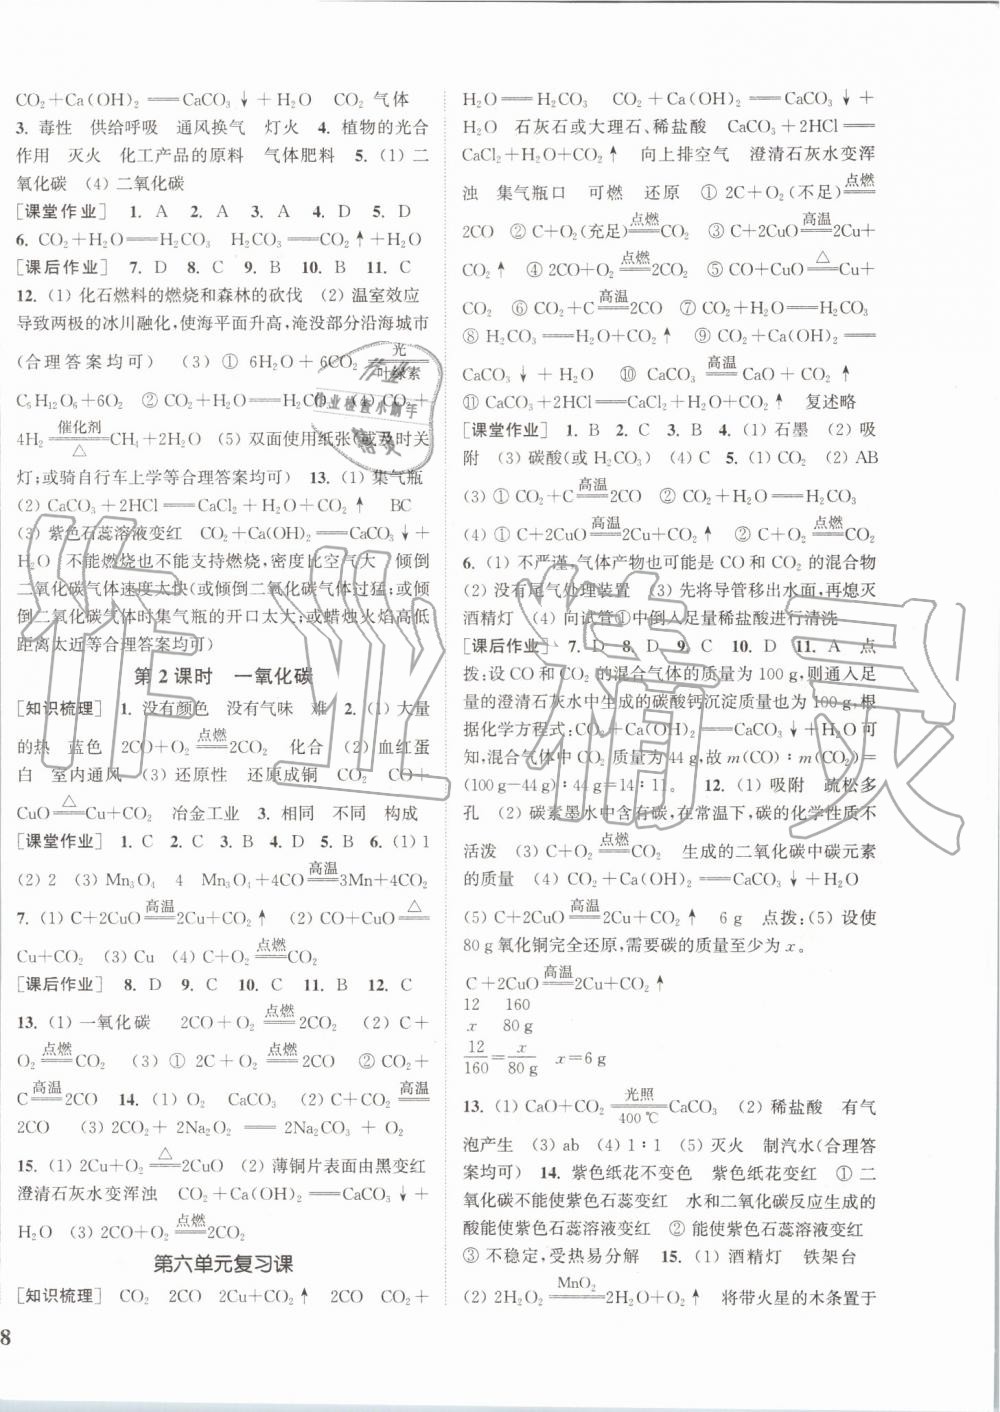 CO₂+Ca(OH)₂══CaCO₃↓+H₂O　CO₂ 气体
3. 毒性　供给呼吸　通风换气　灯火　4. 植物的光合
作用　灭火　化工产品的原料　气体肥料　5. (1) 二
氧化碳　(4) 二氧化碳
[课堂作业]　1. A　2. A　3. A　4. D　5. D
6. CO₂+H₂O══H₂CO₃　H₂CO₃══CO₂↑+H₂O
[课后作业]　7. D　8. C　9. B　10. B　11. C
12. (1) 化石燃料的燃烧和森林的砍伐　(2) 温室效应
导致两极的冰川融化,使海平面升高,淹没部分沿海城市
(合理答案均可)　(3) ① 6H₂O+6CO₂ ═光/叶绿素═
C₆H₁₂O₆+6O₂　② CO₂+H₂O══H₂CO₃　(4) CO₂+
4H₂ ═催化剂/△═ CH₄+2H₂O　(5) 双面使用纸张(或及时关
灯;或骑自行车上学等合理答案均可)　13. (1) 集气瓶
(2) CaCO₃+2HCl══CaCl₂+H₂O+CO₂↑　BC
(3) 紫色石蕊溶液变红　CO₂+Ca(OH)₂══CaCO₃↓+
H₂O　(4) 不能燃烧也不能支持燃烧,密度比空气大　倾倒
二氧化碳气体速度太快(或倾倒二氧化碳气体过猛;或倾
倒二氧化碳气体时集气瓶的开口太大;或蜡烛火焰高低
距离太近等合理答案均可)
第 2 课时　一氧化碳
[知识梳理]　1. 没有颜色　没有气味　难　2. (1) 大量
的热　蓝色　2CO+O₂ ═点燃═ 2CO₂　化合　(2) 血红蛋
白　室内通风　(3) 还原性　还原成铜　CO₂　CO+
CuO ═△═ Cu+CO₂　冶金工业　3. 相同　不同　构成
[课堂作业]　1. C　2. C　3. D　4. B　5. B　6. (1) 1
(2) 2　(3) Mn₃O₄　4　Mn₃O₄+4CO ═高温═ 3Mn+4CO₂
7. (1) C+2CuO ═高温═ 2Cu+CO₂↑　(2) CO+CuO ═△═
Cu+CO₂　(3) Cu　(4) C+O₂ ═点燃═ CO₂
[课后作业]　8. D　9. C　10. C　11. B　12. C
13. (1) 一氧化碳　2CO+O₂ ═点燃═ 2CO₂　(2) C+
O₂ ═点燃═ CO₂　(3) ① 2C+O₂ ═点燃═ 2CO　② CO₂+
C ═高温═ 2CO　14. (1) O₂　CaCO₃　(2) C+CO₂ ═高温═
2CO　(3) 2CO₂+2Na₂O₂══2Na₂CO₃+O₂
15. (1) 2Cu+O₂ ═△═ 2CuO　(2) 薄铜片表面由黑变红
澄清石灰水变浑浊　CO₂+Ca(OH)₂══CaCO₃↓+
H₂O　(3) 2CO+O₂ ═点燃═ 2CO₂
第六单元复习课
[知识梳理]　CO₂　2CO　2Cu+CO₂↑　2CO　CO₂+
8
H₂O══H₂CO₃　CO₂+Ca(OH)₂══CaCO₃↓+
H₂O　石灰石或大理石、稀盐酸　CaCO₃+2HCl══
CaCl₂+H₂O+CO₂↑　向上排空气　澄清石灰水变浑
浊　集气瓶口　可燃　还原　① 2C+O₂(不足) ═点燃═
2CO　② C+O₂(充足) ═点燃═ CO₂　③ C+2CuO ═高温═ 2Cu+
CO₂↑　④ 2CO+O₂ ═点燃═ 2CO₂　⑤ CO+CuO ═△═ Cu+
CO₂　⑥ CO₂+C ═高温═ 2CO　⑦ CO₂+H₂O══H₂CO₃
⑧ H₂CO₃══H₂O+CO₂↑　⑨ CO₂+Ca(OH)₂══
CaCO₃↓+H₂O　⑩ CaCO₃ ═高温═ CaO+CO₂↑
⑪ CaCO₃+2HCl══CaCl₂+H₂O+CO₂↑　复述略
[课堂作业]　1. B　2. C　3. B　4. (1) 石墨　(2) 吸
附　(3) 碳酸(或 H₂CO₃)　(4) C　5. (1) CO₂　(2) AB
(3) ① CO₂+C ═高温═ 2CO　② CO₂+H₂O══H₂CO₃
(4) ① C+2CuO ═高温═ 2Cu+CO₂↑　② C+O₂ ═点燃═ CO₂
6. (1) 不严谨,气体产物也可能是 CO 和 CO₂ 的混合物
(2) 没有尾气处理装置　(3) 先将导管移出水面,再熄灭
酒精灯　(4) 向试管①中倒入足量稀盐酸进行清洗
[课后作业]　7. D　8. D　9. C　10. D　11. A　点
拨:设 CO 和 CO₂ 的混合气体的质量为 100 g,则通入足
量的澄清石灰水中生成的碳酸钙沉淀质量为 100 g。根
据化学方程式:CO₂+Ca(OH)₂══CaCO₃↓+H₂O 可
知,混合气体中 CO₂ 质量为 44 g,故 m(CO)∶m(CO₂)=
(100 g-44 g)∶44 g=14∶11。　12. (1) 吸附　疏松多
孔　(2) 碳素墨水中含有碳,在常温下,碳的化学性质不
活泼　(3) C+O₂ ═点燃═ CO₂　生成的二氧化碳中碳元素
的质量　(4) CO₂+Ca(OH)₂══CaCO₃↓+H₂O
(5) C+2CuO ═高温═ 2Cu+CO₂↑　6 g　点拨:(5) 设使
80 g 氧化铜完全还原,需要碳的质量至少为 x。
C+2CuO ═高温═ 2Cu+CO₂↑
12　160
x　80 g
12/160=x/80 g　x=6 g
13. (1) CaO+CO₂ ═光照/400 ℃═ CaCO₃　(2) 稀盐酸　有气
泡产生　(3) ab　(4) 1∶1　(5) 灭火　制汽水(合理答
案均可)　14. 紫色纸花不变色　紫色纸花变红　① 二
氧化碳不能使紫色石蕊变红　水和二氧化碳反应生成的
酸能使紫色石蕊溶液变红　② 能使紫色石蕊溶液变红
③ 不稳定,受热易分解　15. (1) 酒精灯　铁架台
(2) 2H₂O₂ ═MnO₂═ 2H₂O+O₂↑　将带火星的木条置于
作业精灵
作业
作业检查小助手
精灵